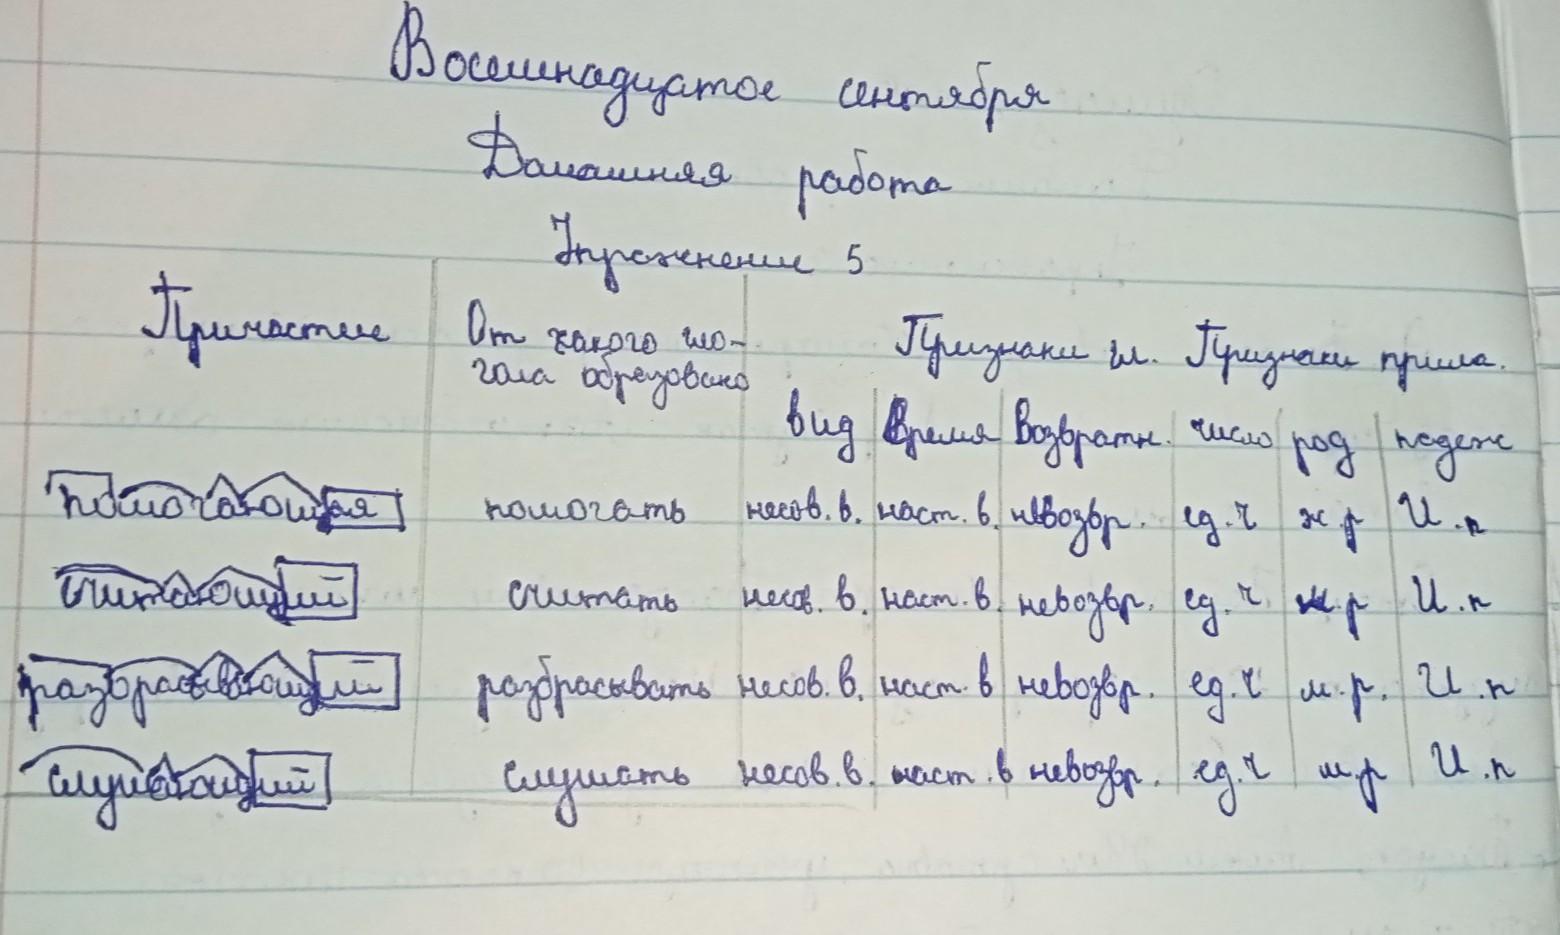 Восемнадцатое сентября
Домашняя работа
Упражнение 5
Причастие От какого гла- Признаки гл. Признаки прила.
гола образовано
вид Время Возвратн. число род падеж
помогающая помогать несов. в. наст. в. невозвр. ед. ч ж. р И. п
считающий считать несов. в. наст. в. невозвр. ед. ч. м. р И. п
разбрасывающий разбрасывать несов. в. наст. в невозвр. ед. ч м. р. И. п
слушающий слушать несов. в. наст. в невозвр. ед. ч м. р И. п